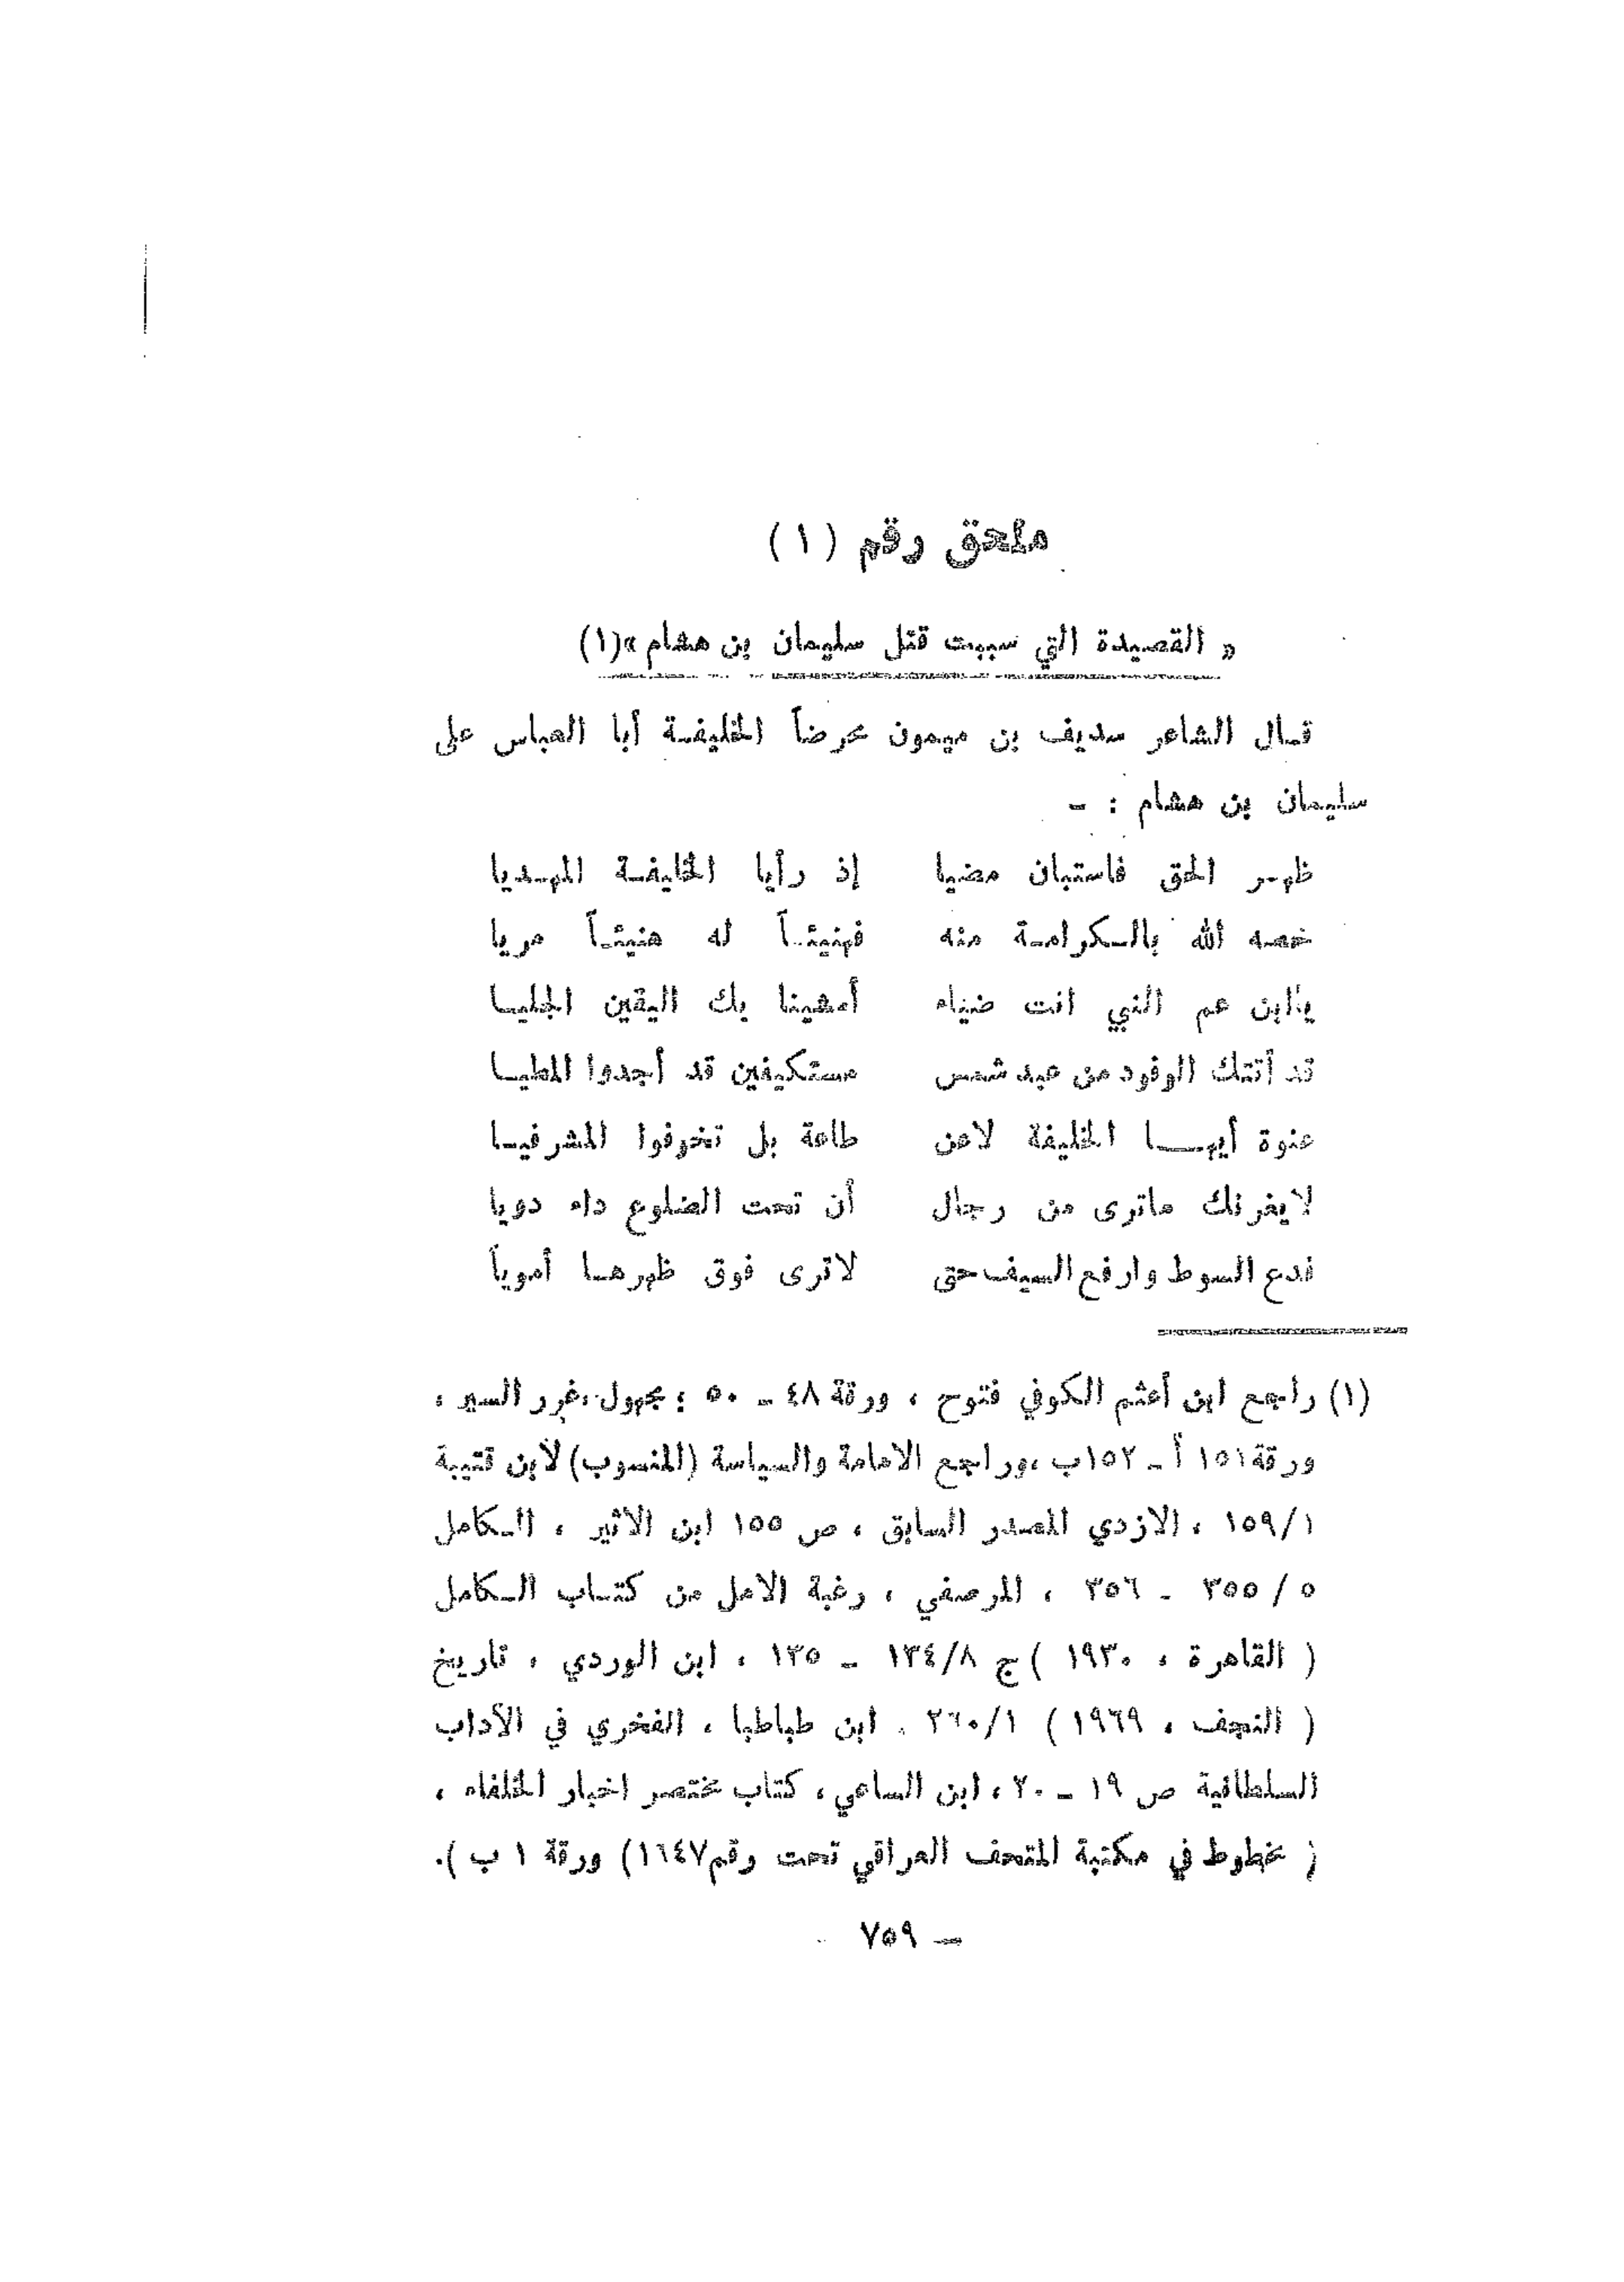 ملحق رقم (١)
« القصيدة التي سببت قتل سليمان بن هشام »(١)
قال الشاعر سديف بن ميمون محرضاً الخليفة أبا العباس على
سليمان بن هشام : ـ
ظهر الحق فاستبان مضيا إذ رأيا الخليفة المهديا
خصه الله بالكرامة منه فهنيئاً له هنيئاً مريا
ياابن عم النبي انت ضياء أمشينا بك اليقين الجليا
قد أتتك الوفود من عبد شمس مستكيفين قد أجدوا المطيا
عنوة أيها الخليفة لاعن طاعة بل تخوفوا المشرفيا
لايغرنك ماترى من رجال أن تحت الضلوع داء دويا
فدع السوط وارفع السيف حتى لاترى فوق ظهرها أموياً
(١) راجع ابن أعثم الكوفي فتوح ، ورقة ٤٨ ـ ٥٠ ؛ مجهول ،غرر السير ،
ورقة ١٥١ أ ـ ١٥٢ب ،وراجع الامامة والسياسة (المنسوب) لأبن قتيبة
١/١٥٩ ، الازدي المصدر السابق ، ص ١٥٥ ابن الاثير ، الكامل
٥ / ٣٥٥ ـ ٣٥٦ ، المرصفي ، رغبة الامل من كتاب الكامل
( القاهرة ، ١٩٣٠ ) ج ٨/١٣٤ ـ ١٣٥ ، ابن الوردي ، تاريخ
( النجف ، ١٩٦٩ ) ١/٢٦٠ . ابن طباطبا ، الفخري في الآداب
السلطانية ص ١٩ ـ ٢٠ ، ابن الساعي ، كتاب مختصر اخبار الخلفاء ،
( مخطوط في مكتبة المتحف العراقي تحت رقم ١٦٤٧) ورقة ١ ب ).
ـ ٧٥٩